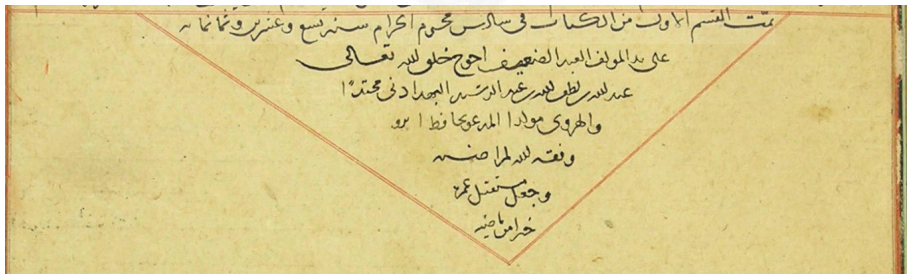 تمت القسم الاول من الكتاب فى سادس محرم الحرام سنه تسع وعشرين وثمانمائه
على يد المولف العبد الضعيف احوج خلق لله تعالى
عبد لله بن لطف لله بن عبد الرشيد البهدادنى محتدًا
والهروى مولدا المدعو بحافظ ابرو
وفقه لله لمراضيه
وجعل مستقبل عمره
خيرا من ماضيه